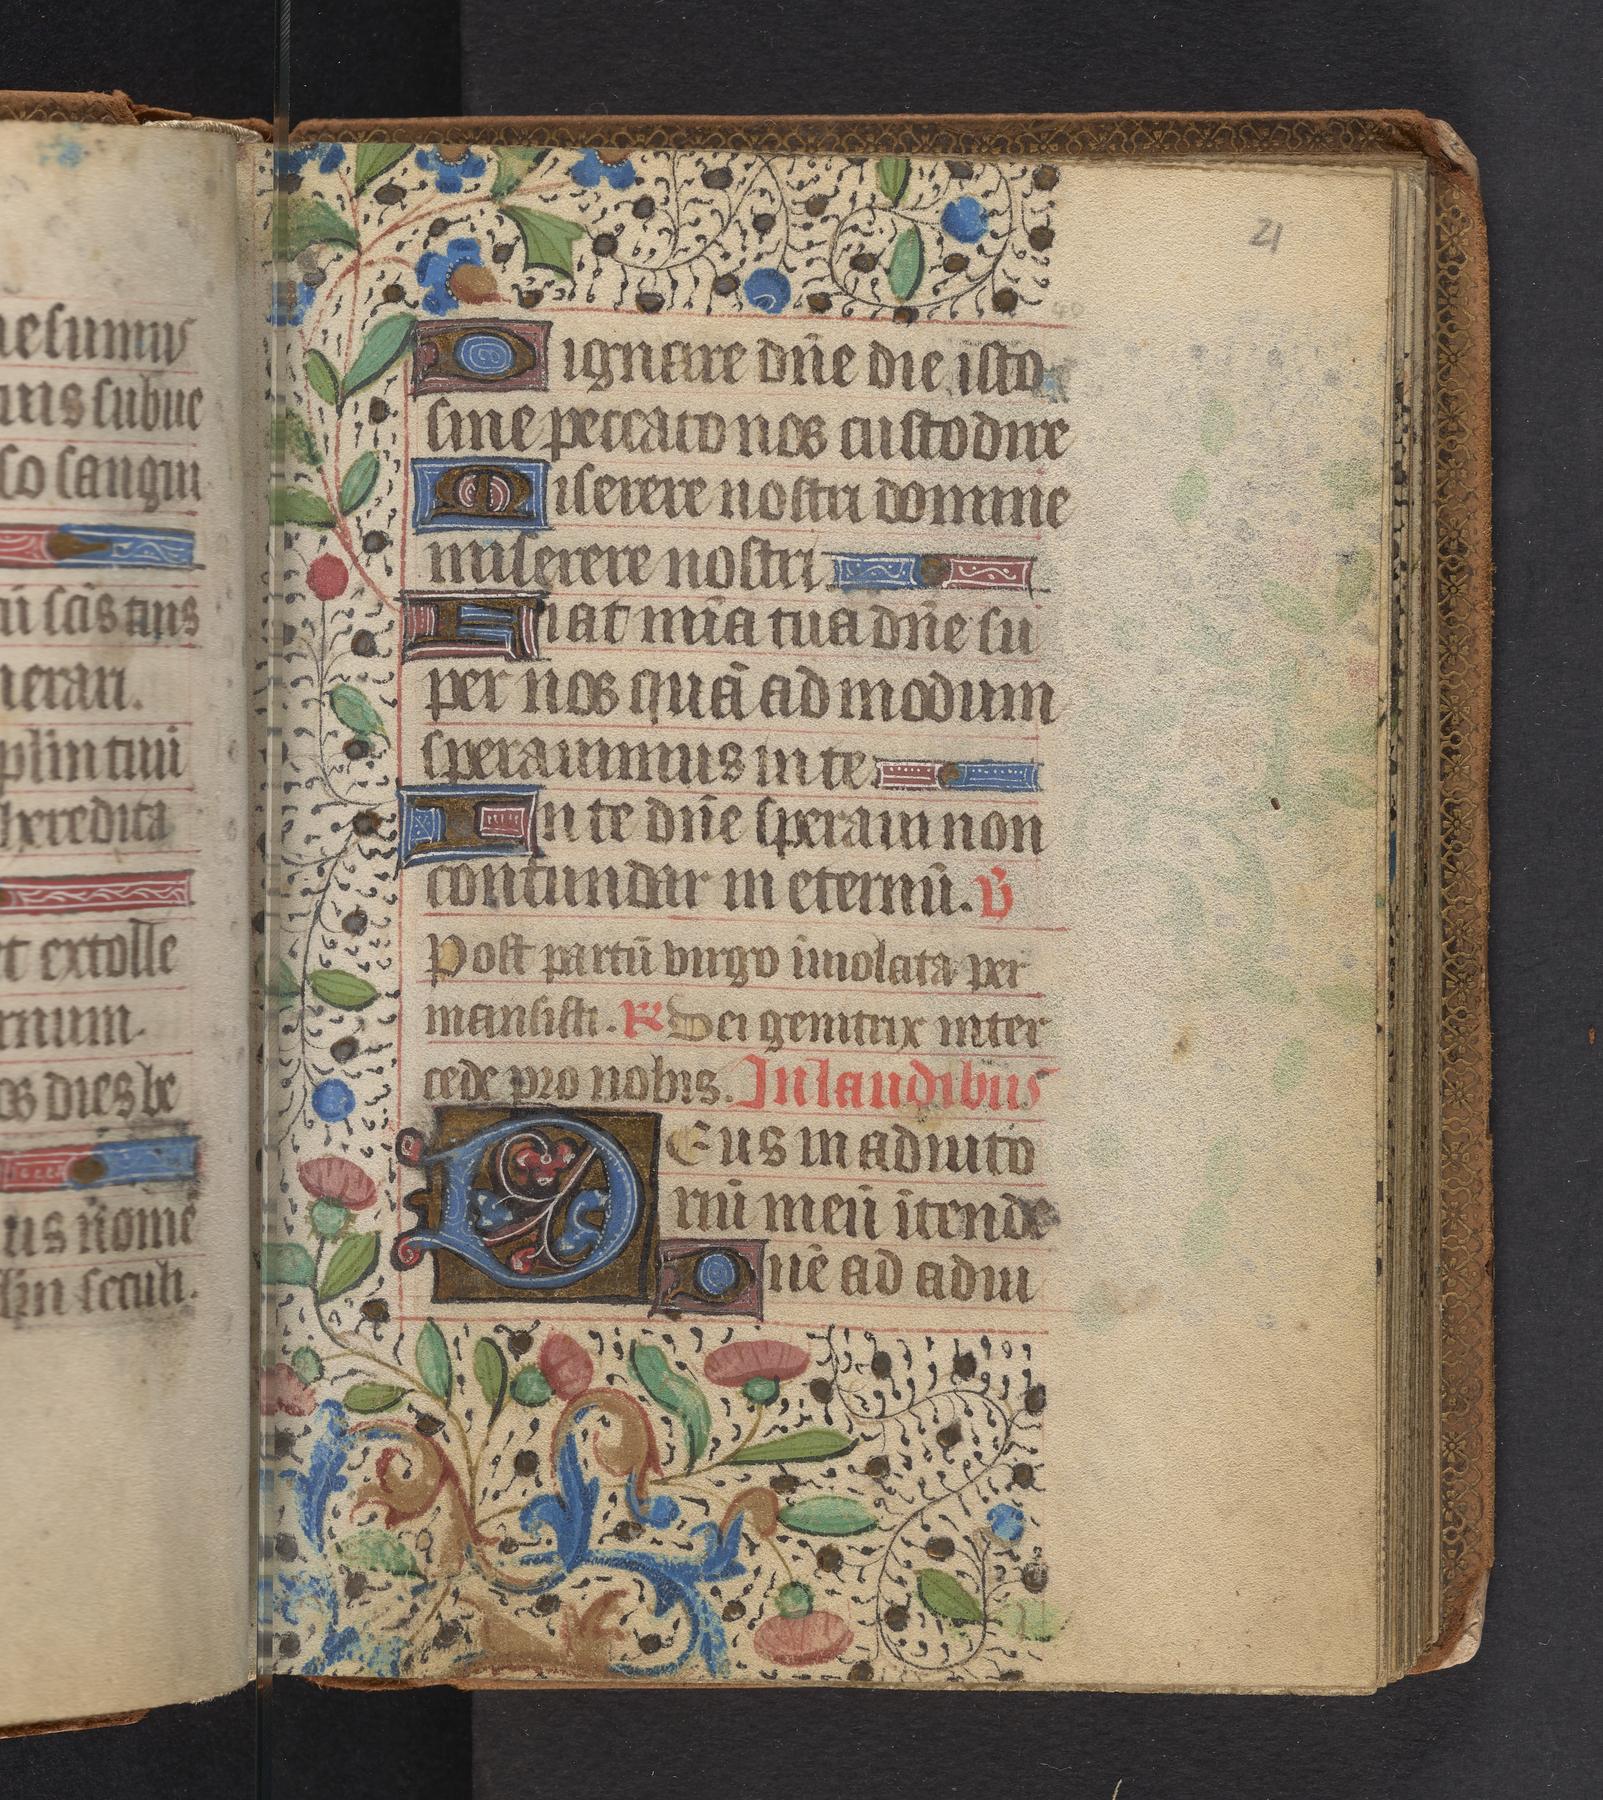 nesumus
tuis subue
so sangui
cū scīs tuis
nerari.
plm̄ tuū
heredita
et extolle
rnum.
os dies be
us nomē
sclm̄ seculi.
21
Dignare dn̄e die isto
sine peccato nos custodire
Miserere nostri domine
miserere nostri
Fiat mīa tua dn̄e su
per nos quā ad modum
sperauimus in te
In te dn̄e speraui non
confundar in eternū. V̄
Post partū uirgo īuiolata per
mansisti. R̄ Dei genitrix inter
cede pro nobis. In laudibus
Deus in adiuto
riū meū ītende
Dn̄e ad adiu